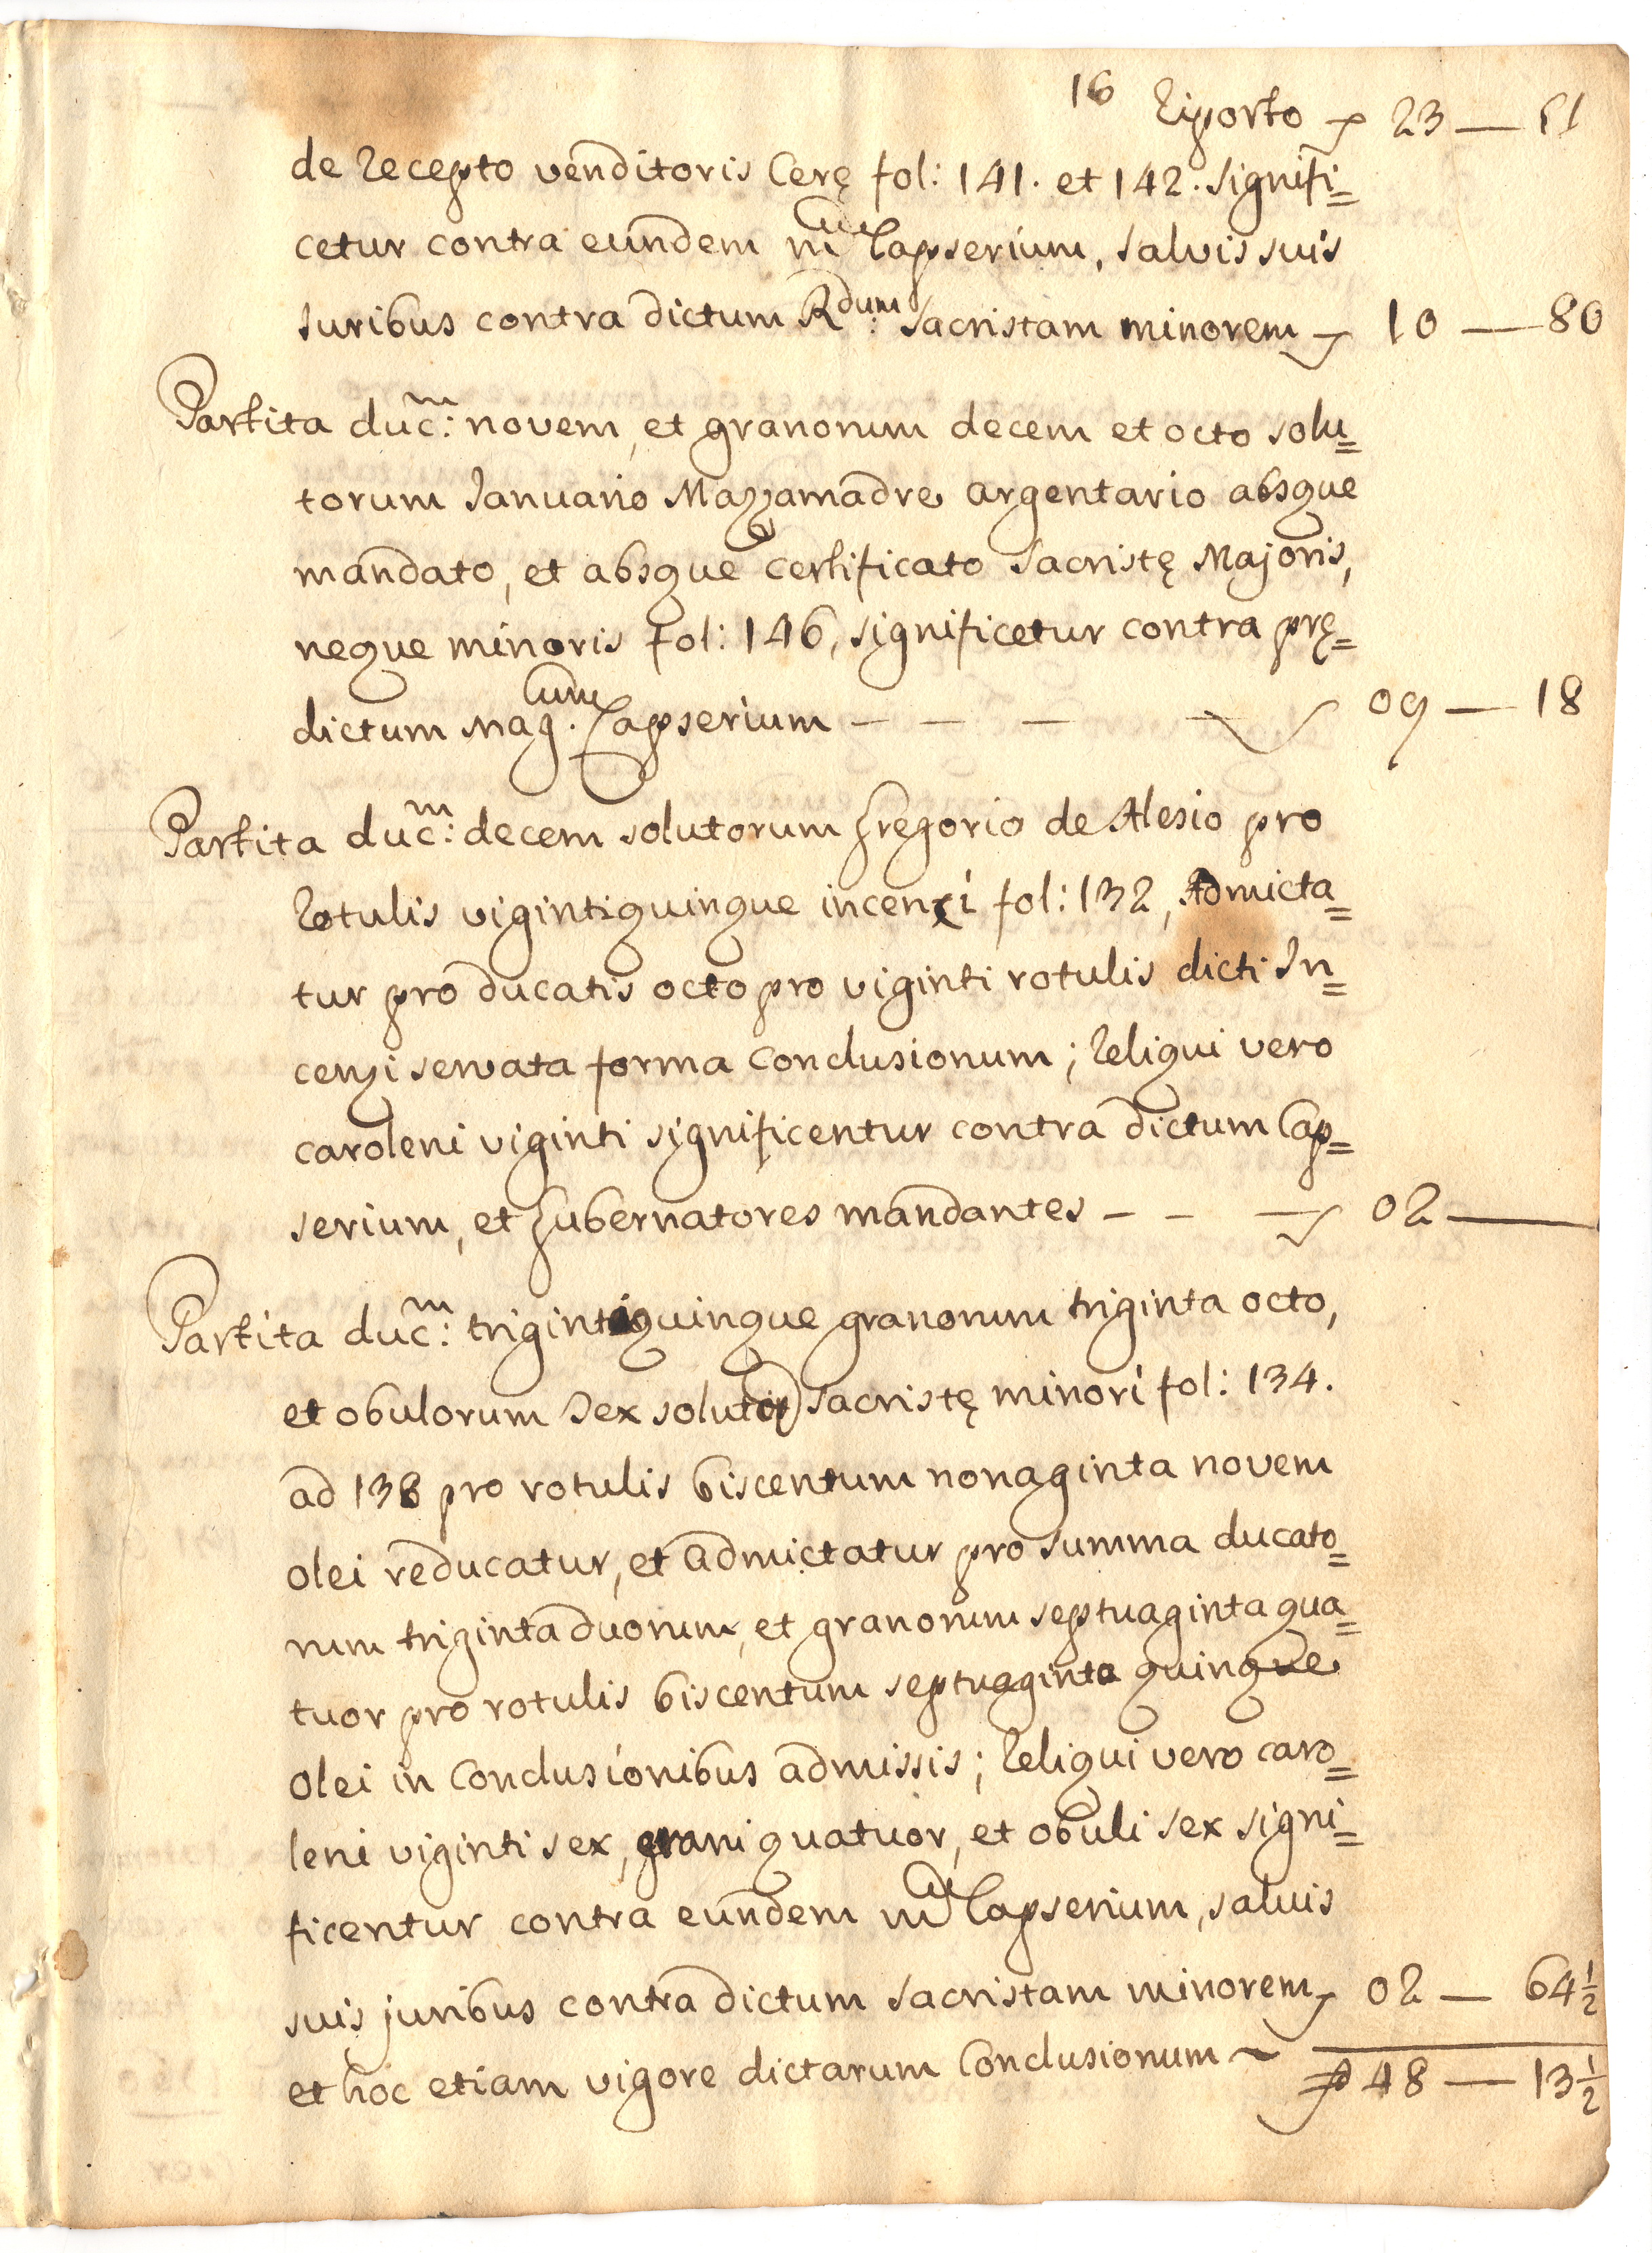 16 Riporto 23 — 51
de recepto venditoris Cerę fol: 141. et 142. signifi=
cetur contra eundem m.cum Capserium, salvis suis
Iuribus contra dictum R.dum Sacristam minorem 10 — 80
Partita duc.m: novem, et granorum decem et octo solu=
torum Ianuario Mazzamadre argentario absque
mandato, et absque certificato Sacristę Majoris,
neque minoris fol: 146, significetur contra prę=
dictum Mag.cum Capserium — — — — 09 — 18
Partita duc.m: decem solutorum Gregorio de Alesio pro
Rotulis vigintiquinque incenzi fol: 132, Admicta=
tur pro ducatis octo pro viginti rotulis dicti In=
cenzi servata forma Conclusionum; Reliqui vero
caroleni viginti significentur contra dictum Cap=
serium, et Gubernatores mandantes — — — 02 —
Partita duc.m: trigintaquinque granorum triginta octo,
et obulorum sex solutor Sacristę minori fol: 134.
ad 138 pro rotulis biscentum nonaginta novem
olei reducatur, et admictatur pro summa ducato=
rum triginta duorum, et granorum septuaginta qua=
tuor pro rotulis biscentum septuaginta quinque
olei in Conclusionibus admissis; Reliqui vero caro=
leni viginti sex, grani quatuor, et obuli sex signi=
ficentur contra eundem m.cum Capserium, salvis
suis juribus contra dictum Sacristam minorem 02 — 64½
et hoc etiam vigore dictarum Conclusionum ~ 48 — 13½